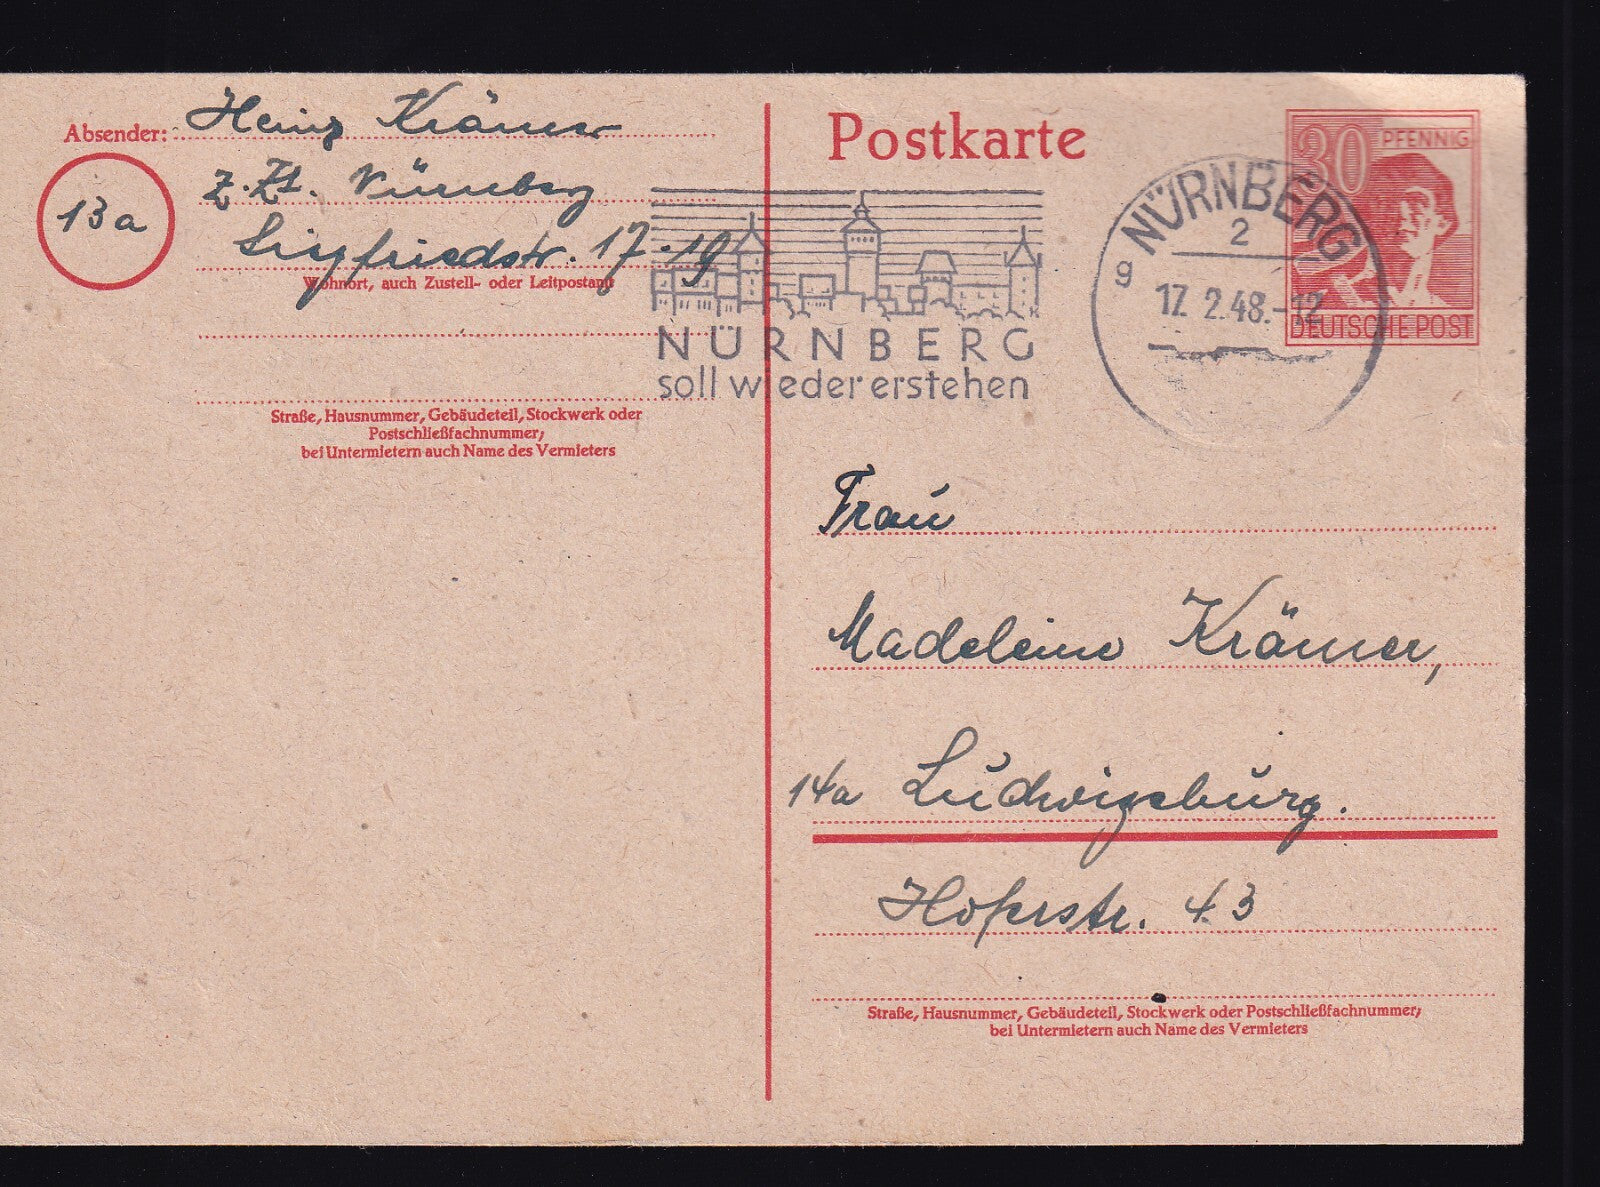 Absender: Heinz Krämer
13a
z. Zt. Nürnberg
Siegfriedstr. 17-19
Wohnort, auch Zustell- oder Leitpostamt
Straße, Hausnummer, Gebäudeteil, Stockwerk oder
Postschließfachnummer;
bei Untermietern auch Name des Vermieters
NÜRNBERG
soll wieder erstehen
Postkarte
30 PFENNIG
DEUTSCHE POST
NÜRNBERG
2
g
17. 2. 48.-12
Frau
Madeleine Krämer,
14a Ludwigsburg.
Hoferstr. 43
Straße, Hausnummer, Gebäudeteil, Stockwerk oder Postschließfachnummer;
bei Untermietern auch Name des Vermieters